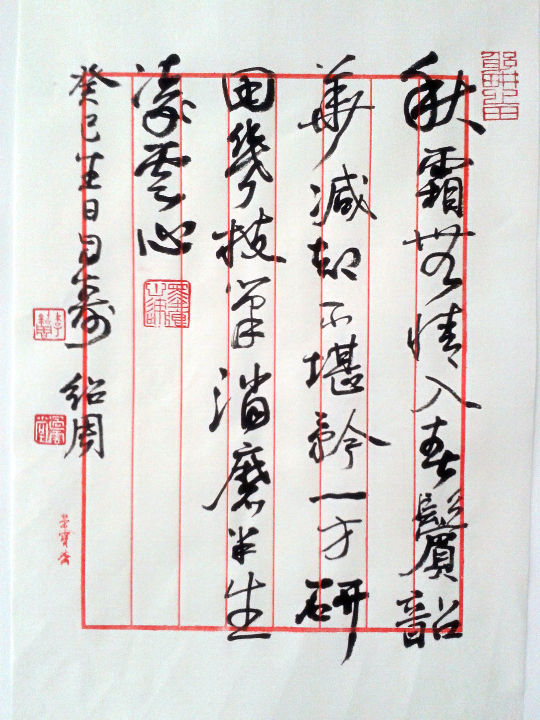 秋霜無情入春鬢韶
華減却不堪矜一方研
田幾枝筆消磨半生
凌雲心
癸巳生日自壽 紹周
榮寶齋